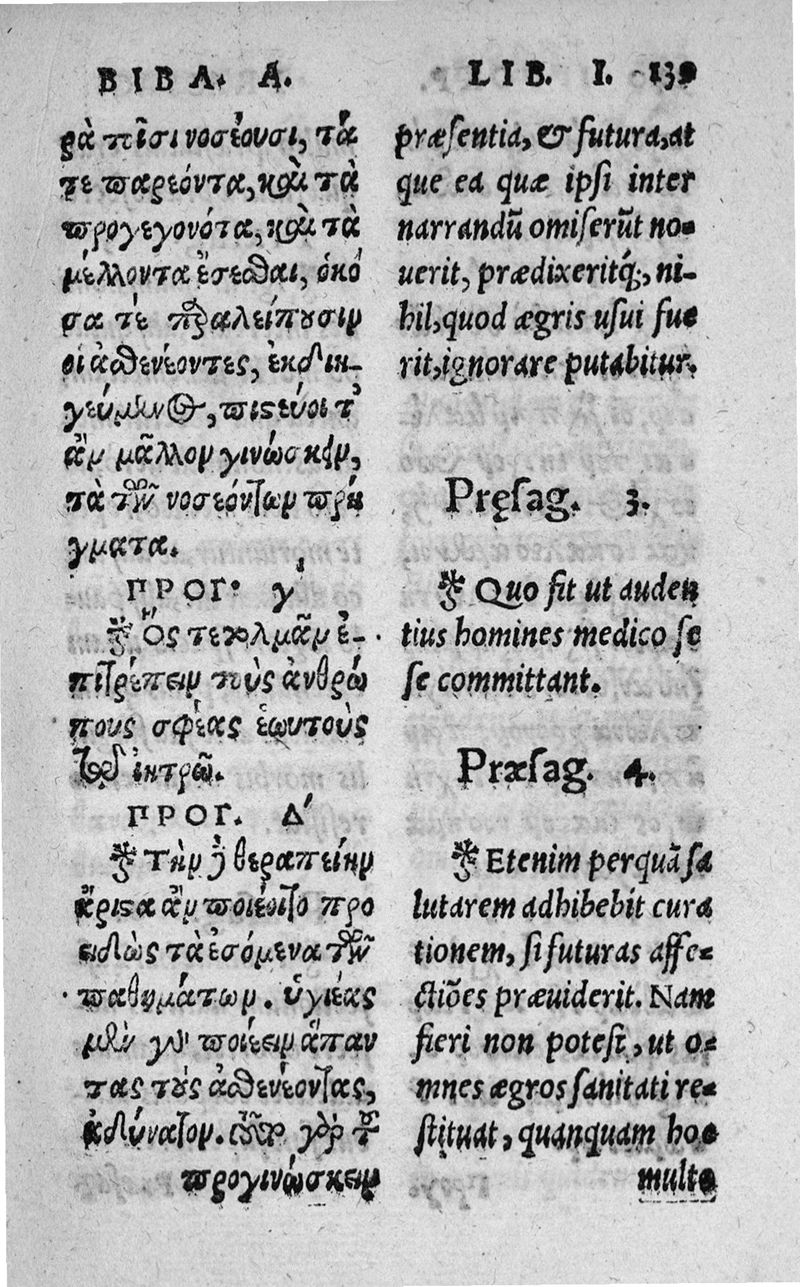 ΒΙΒΛ. Α.
ρὰ τοῖσι νοσέουσι, τά
τε παρεόντα, καὶ τὰ
προγεγονότα, καὶ τὰ
μέλλοντα ἔσεσθαι, ὁκό
σα τε παραλείπουσιν
οἱ ἀσθενέοντες, ἐκδιη-
γεύμενος, πιστεύοι τ'
ἂν μᾶλλον γινώσκειν,
τὰ τῶν νοσεόντων πρή
γματα.
ΠΡΟΓ. γ
Ὥς τε τολμᾶν ἐ-
πιτρέπειν τοὺς ἀνθρώ
πους σφέας ἑωυτοὺς
τῷ ἰητρῷ.
ΠΡΟΓ. Δ'
Τὴν δὲ θεραπείην
ἄριστα ἂν ποιέοιτο προ
ειδὼς τὰ ἐσόμενα τῶν
παθημάτων. ὑγιέας
μὲν γὰρ ποιέειν ἅπαν
τας τοὺς ἀσθενέοντας,
ἀδύνατον.
προγινώσκειν
LIB. I. 139
præsentia, & futura, at
que ea quæ ipsi inter
narrandũ omiserũt no-
uerit, prædixeritq́;, ni-
hil, quod ægris usui fue
rit, ignorare putabitur.
Pręsag. 3.
Quo fit ut auden
tius homines medico se
se committant.
Præsag. 4.
Etenim perquã sa
lutarem adhibebit cura
tionem, si futuras affe-
ctiões præuiderit. Nam
fieri non potest, ut o-
mnes ægros sanitati re-
stituat, quanquam hoc
multo